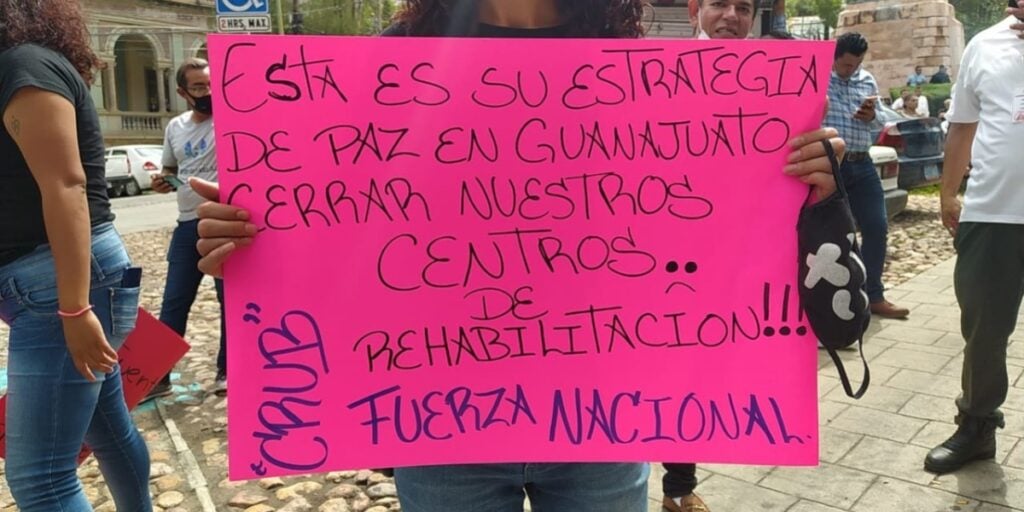 2 HRS. MAX.
ESTA ES SU ESTRATEGIA
DE PAZ EN GUANAJUATO
CERRAR NUESTROS
CENTROS..
DE
REHABILITACION!!!
FUERZA NACIONAL.
"CRUB"